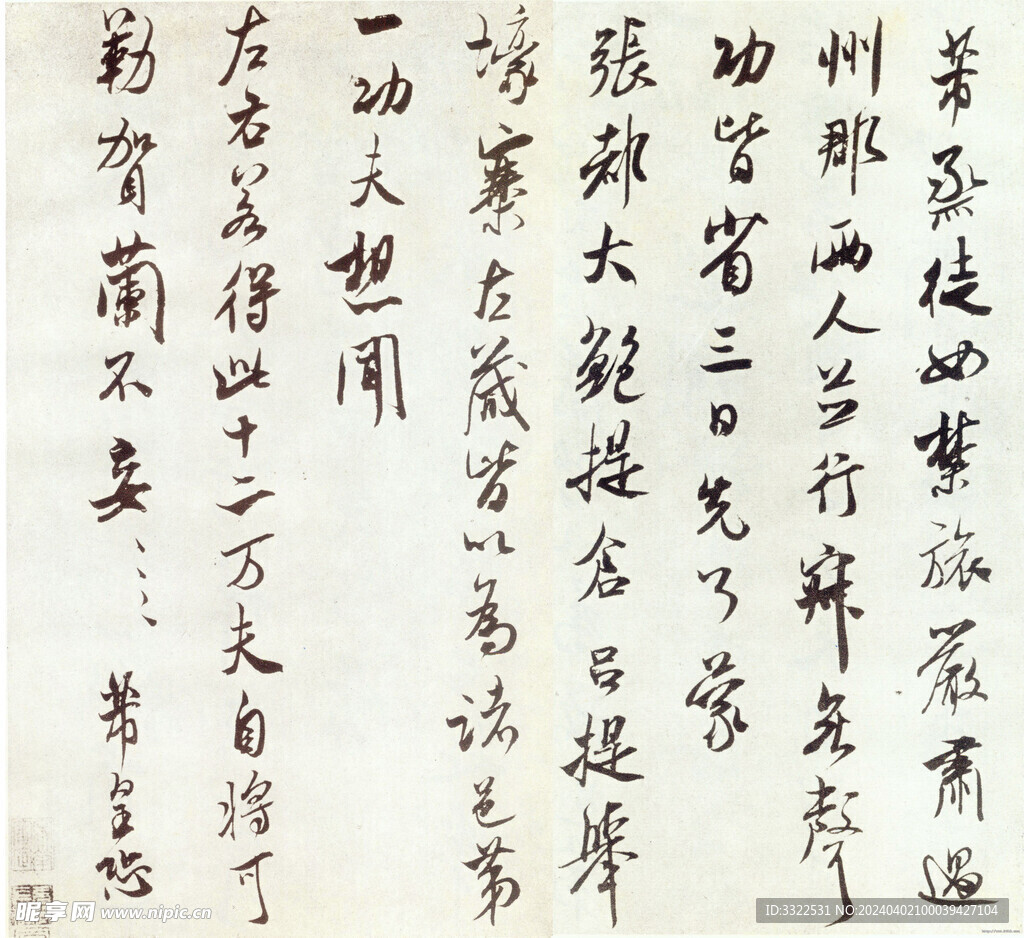 芾烝徒如禁旅嚴肅過
州郡兩人並行寂無聲
功皆省三日先了蒙
張都大鮑提倉呂提舉
壕寨左藏皆以為諸邑第
一功夫想聞
左右若得此十二万夫自將可
勒賀蘭不妄〻〻芾皇恐
昵享网 www.nipic.cn
ID:3322531 NO:20240402100039427104